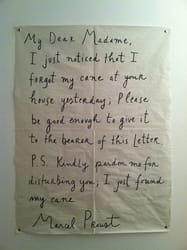 My Dear Madame,
I just noticed that I
forgot my cane at your
house yesterday; Please
be good enough to give it
to the bearer of this letter
P.S. Kindly pardon me for
disturbing you; I just found
my cane
Marcel Proust